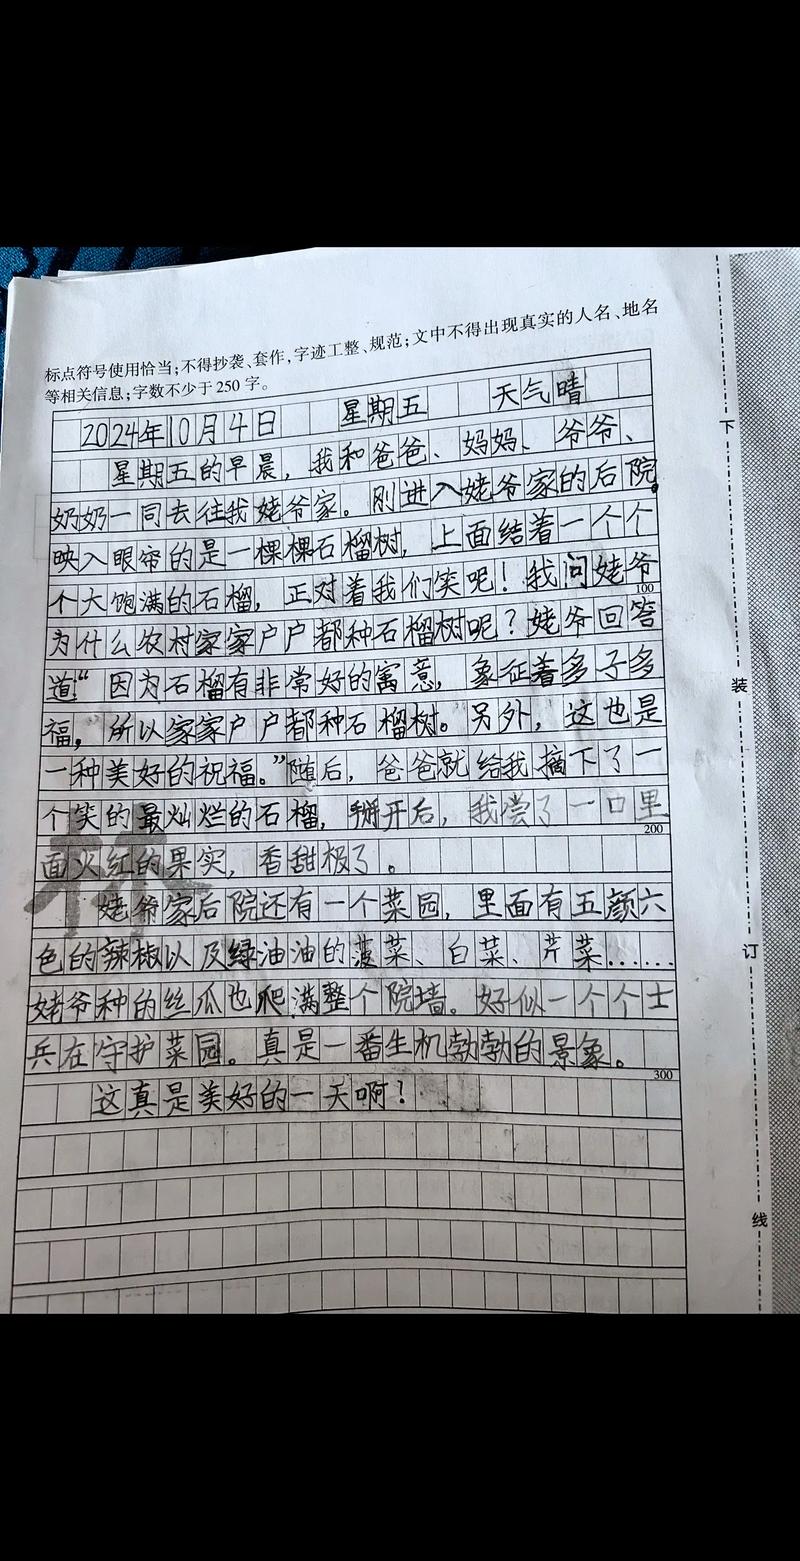 标点符号使用恰当;不得抄袭、套作,字迹工整、规范;文中不得出现真实的人名、地名
等相关信息;字数不少于250字。
2024年10月4日 星期五 天气晴
星期五的早晨，我和爸爸、妈妈、爷爷、
奶奶一同去往我姥爷家。刚进入姥爷家的后院，
映入眼帘的是一棵棵石榴树，上面结着一个个
个大饱满的石榴，正对着我们笑呢！我问姥爷
100
为什么农村家家户户都种石榴树呢？姥爷回答
道：“因为石榴有非常好的寓意，象征着多子多
福，所以家家户户都种石榴树。另外，这也是
一种美好的祝福。”随后，爸爸就给我摘下了一
个笑的最灿烂的石榴，掰开后，我尝了一口里
200
面火红的果实，香甜极了。
姥爷家后院还有一个菜园，里面有五颜六
色的辣椒以及绿油油的菠菜、白菜、芹菜……
姥爷种的丝瓜也爬满整个院墙。好似一个个士
兵在守护菜园。真是一番生机勃勃的景象。
300
这真是美好的一天啊！
林
下
装
订
线